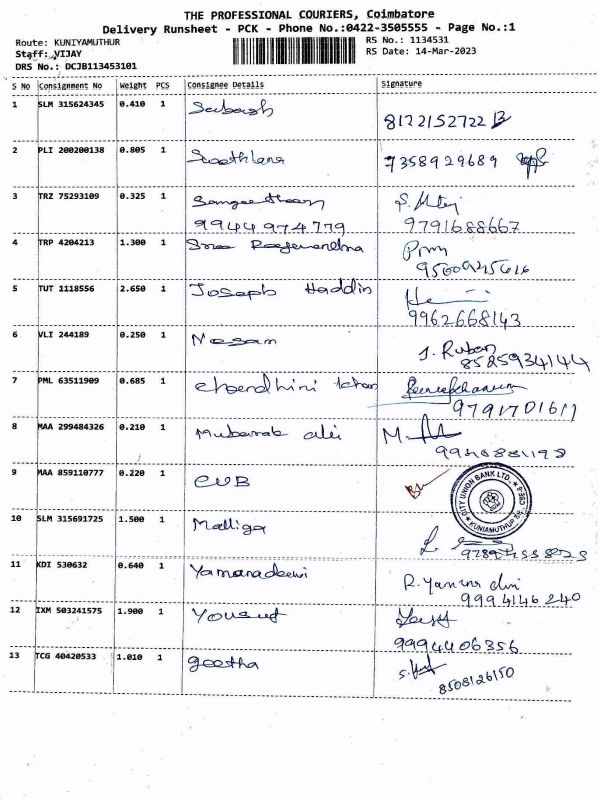 THE PROFESSIONAL COURIERS, Coimbatore
Delivery Runsheet - PCK - Phone No.:0422-3505555 - Page No.:1
Route: KUNIYAMUTHUR
RS No.: 1134531
Staff: VIJAY
RS Date: 14-Mar-2023
DRS No.: DCJB113453101
S No Consignment No Weight PCS Consignee Details Signature
1 SLM 315624345 0.410 1 Subash
8122152722
2 PLI 200200138 0.805 1
7358929689
3 TRZ 75293109 0.325 1
9944974779 9791688667
4 TRP 4204213 1.300 1
5 TUT 1118556 2.650 1 Joseph Haddin
9962668143
6 VLI 244189 0.250 1 Nesam J. Ruban
8525934144
7 PML 63511909 0.685 1 Khan
9791701611
8 MAA 299484326 0.210 1 Mubarak ali
9 MAA 859110777 0.220 1 CUB
CITY UNION BANK LTD.,
KUNIAMUTHUR
10 SLM 315691725 1.500 1 Malliga
11 KDI 530632 0.640 1 Yamanadevi
9994146240
12 IXM 503241575 1.900 1 Yousuf
9994406356
13 TCG 40420533 1.010 1 geetha
8508126150